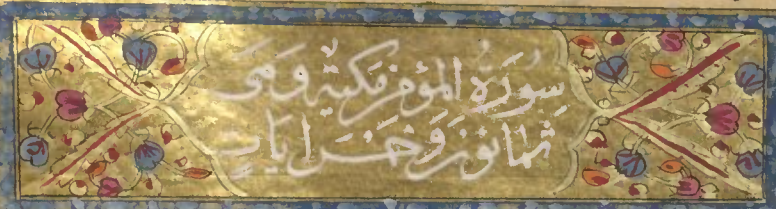 سُورَةُ المؤمن مكية وهي
ثمانون وخمس ايات